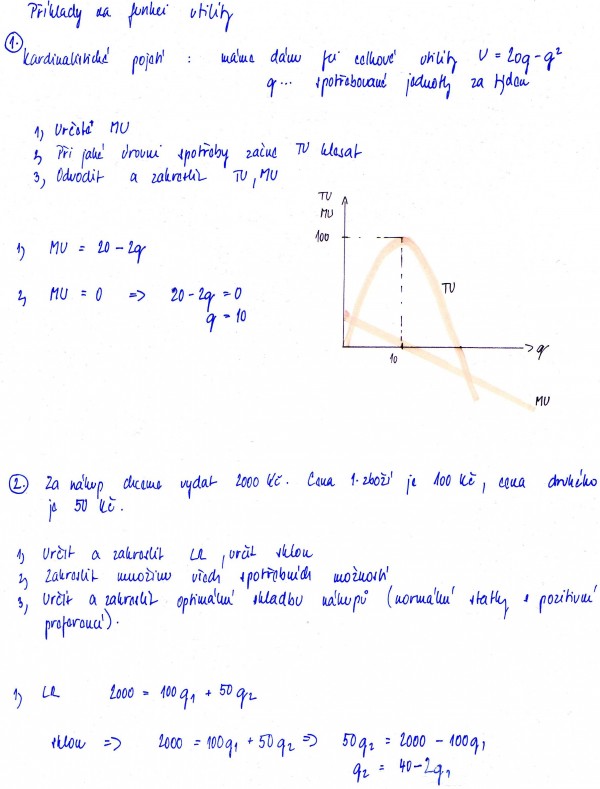 Příklady na funkci utility
1. Kardinalistické pojetí : máme dánu fci celkové utility U = 20q - q²
q... spotřebované jednotky za týden
1, Určete MU
2, Při jaké úrovni spotřeby začne TU klesat
3, Odvodit a zakreslit TU, MU
TU
MU
100
TU
10
q
MU
1, MU = 20 - 2q
2, MU = 0 => 20 - 2q = 0
q = 10
2. Za nákup chceme vydat 2000 Kč. Cena 1. zboží je 100 Kč, cena druhého
je 50 Kč.
1, Určit a zakreslit LR, určit sklon
2, Zakreslit množinu všech spotřebních možností
3, Určit a zakreslit optimální skladbu nákupů (normální statky s pozitivní
preferencí).
1, LR 2000 = 100q₁ + 50q₂
sklon => 2000 = 100q₁ + 50q₂ => 50q₂ = 2000 - 100q₁
q₂ = 40 - 2q₁